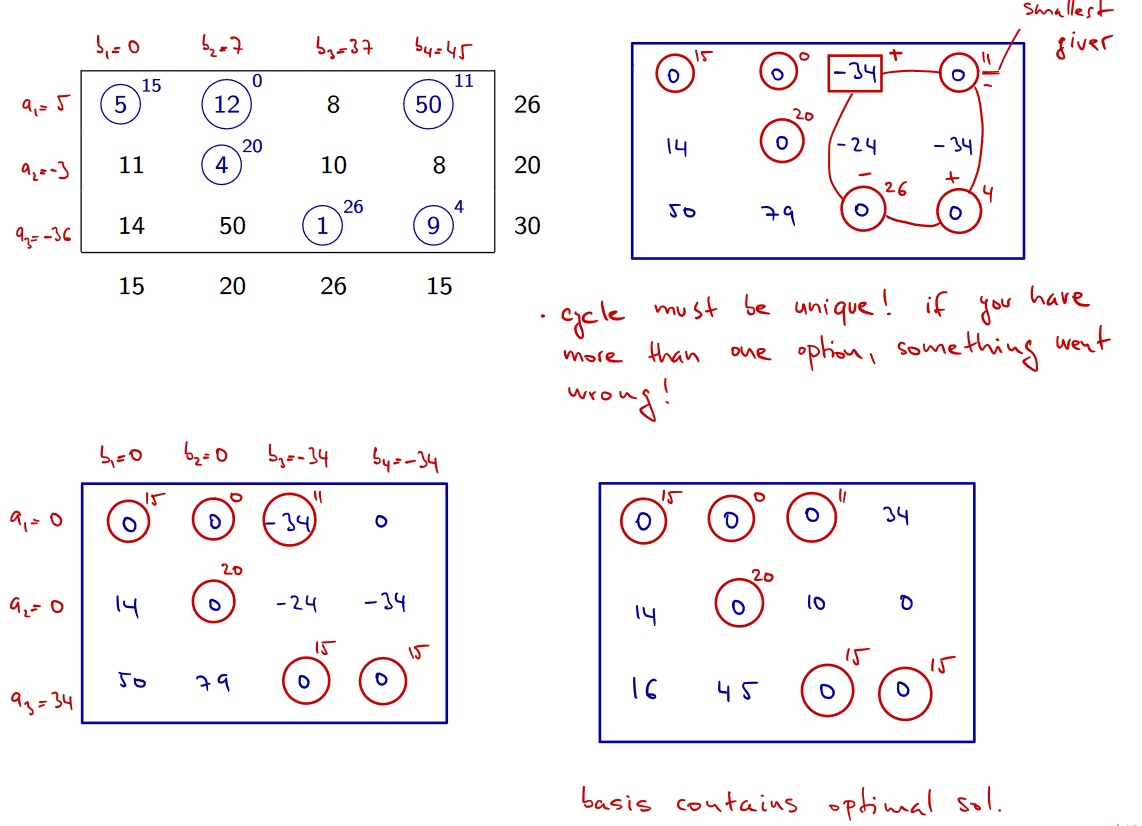 smallest
giver
b₁=0 b₂=7 b₃=37 b₄=45
a₁=5 5 15 12 0 8 50 11 26
a₂=-3 11 4 20 10 8 20
a₃=-36 14 50 1 26 9 4 30
15 20 26 15
0 15 0 0 -34 + 0 11 -
14 0 20 -24 -34
50 79 0 26 - 0 4 +
· cycle must be unique! if you have
more than one option, something went
wrong!
b₁=0 b₂=0 b₃=-34 b₄=-34
a₁=0 0 15 0 0 -34 11 0
a₂=0 14 0 20 -24 -34
a₃=34 50 79 0 15 0 15
0 15 0 0 0 11 34
14 0 20 10 0
16 45 0 15 0 15
basis contains optimal sol.